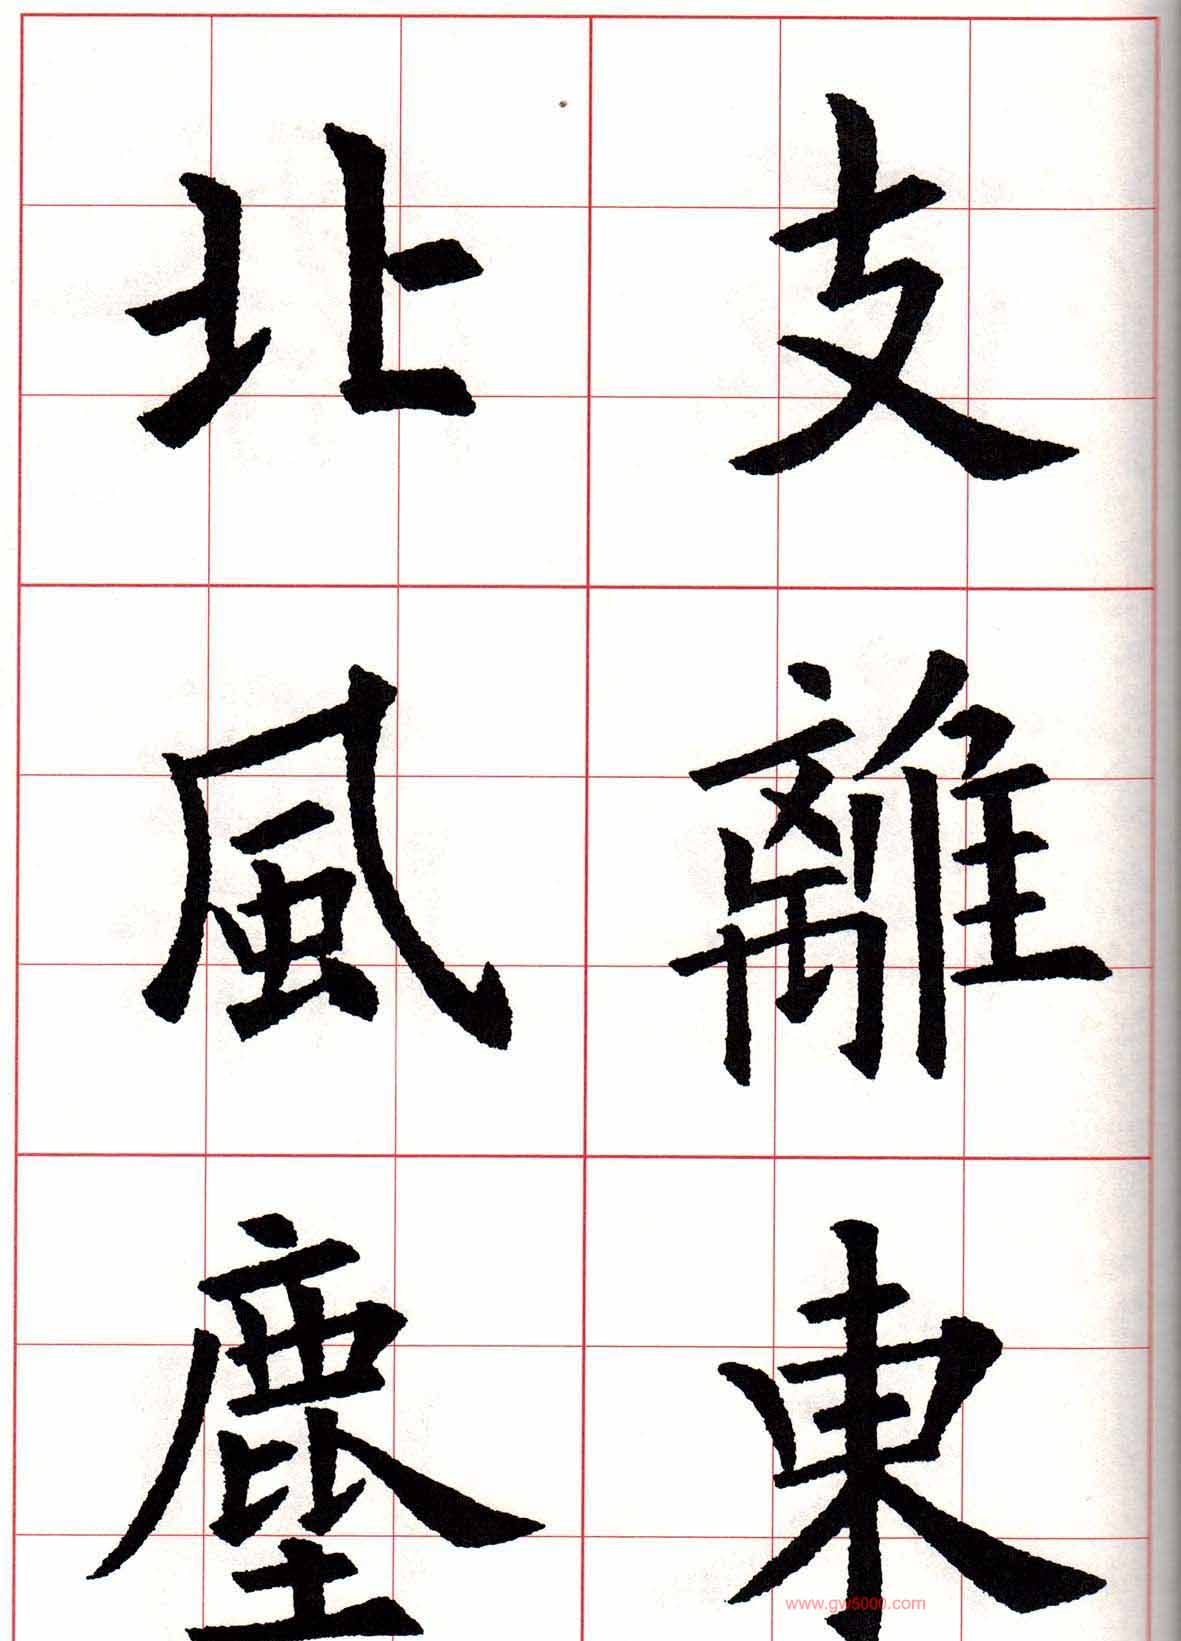 支離東
北風塵
www.gw5000.com